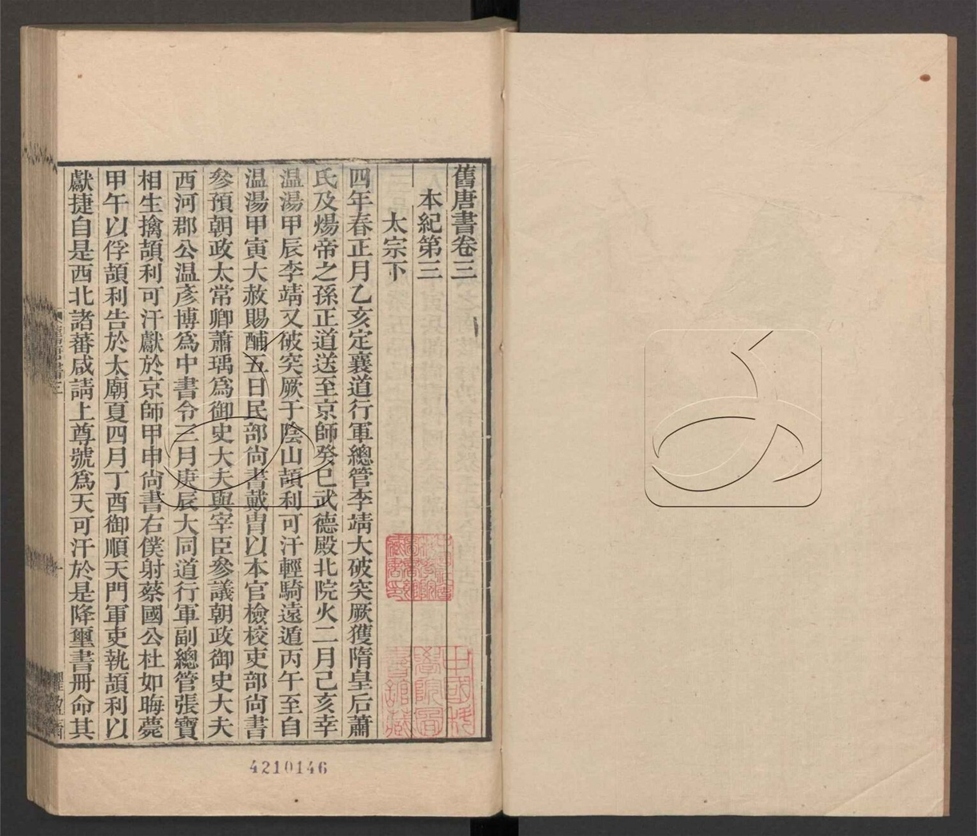 舊唐書卷三
本紀第三
太宗下
四年春正月乙亥定襄道行軍總管李靖大破突厥獲隋皇后蕭
氏及煬帝之孫正道送至京師癸巳武德殿北院火二月己亥幸
温湯甲辰李靖又破突厥于陰山頡利可汗輕騎遠遁丙午至自
温湯甲寅大赦賜酺五日民部尚書戴冑以本官檢校吏部尚書
參預朝政太常卿蕭瑀爲御史大夫與宰臣參議朝政御史大夫
西河郡公温彥博爲中書令三月庚辰大同道行軍副總管張寶
相生擒頡利可汗獻於京師甲申尚書右僕射蔡國公杜如晦薨
甲午以俘頡利告於太廟夏四月丁酉御順天門軍吏執頡利以
獻捷自是西北諸蕃咸請上尊號爲天可汗於是降璽書冊命其
4210146